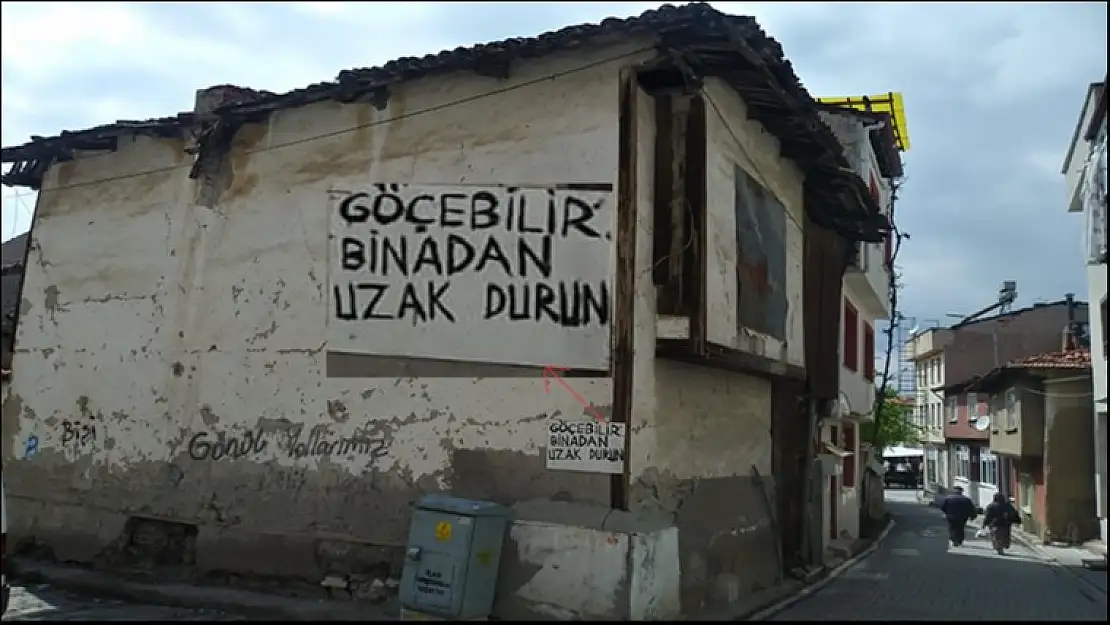 GÖÇEBİLİR
BİNADAN
UZAK DURUN
GÖÇEBİLİR
BİNADAN
UZAK DURUN
BİZİ
Gönül Yollarımız